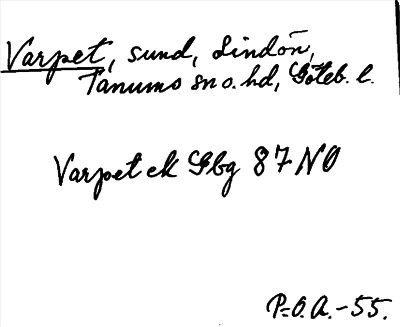 Varpet, sund, Lindön,
Tanums sn o. hd, Göteb. l.
Varpet ek Gbg 87 NO
P=O.A.-55.